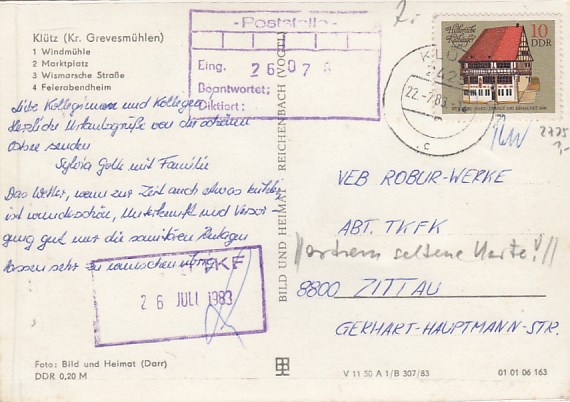 Klütz (Kr. Grevesmühlen)
1 Windmühle
2 Marktplatz
3 Wismarsche Straße
4 Feierabendheim
- Poststelle -
Eing. 26 07
Beantwortet:
Diktiert:
Liebe Kolleginnen und Kollegen
Herzliche Urlaubsgrüße von der schönen
Ostsee senden
Sylvia Golle mit Familie
Das Wetter, wenn zur Zeit auch etwas
ist wunderschön, Unterkunft und Versor-
gung gut nur die sanitären Anlagen
lassen sehr zu wünschen übrig
TKF
26 JULI 1983
Foto: Bild und Heimat (Darr)
DDR 0,20 M
BILD UND HEIMAT REICHENBACH (VOGTL)
10
DDR
KLÜTZ
242
22.-7.83
c
2775
VEB ROBUR-WERKE
ABT. TKFK
seltene Karte!!
8800 ZITTAU
GERHART-HAUPTMANN-STR.
V 11 50 A 1/B 307/83
01 01 06 163